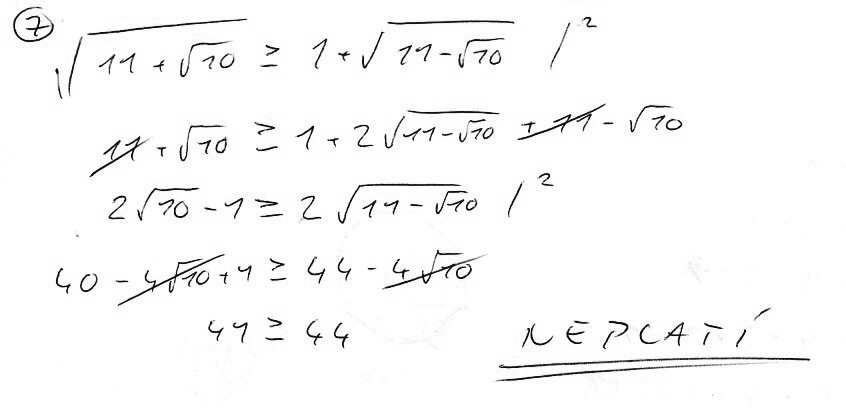 ⑦ √(11 + √10) ≥ 1 + √(11 - √10) /²
11 + √10 ≥ 1 + 2√(11 - √10) + 11 - √10
2√10 - 1 ≥ 2√(11 - √10) /²
40 - 4√10 + 1 ≥ 44 - 4√10
41 ≥ 44
NEPLATÍ